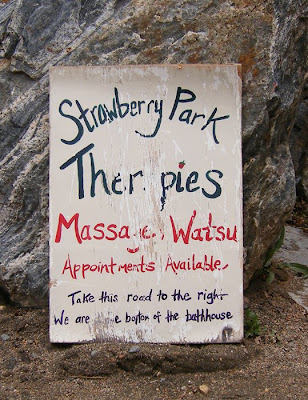 Strawberry Park
Therapies
Massage, Watsu
Appointments Available
Take this road to the right
We are the bottom of the bathhouse